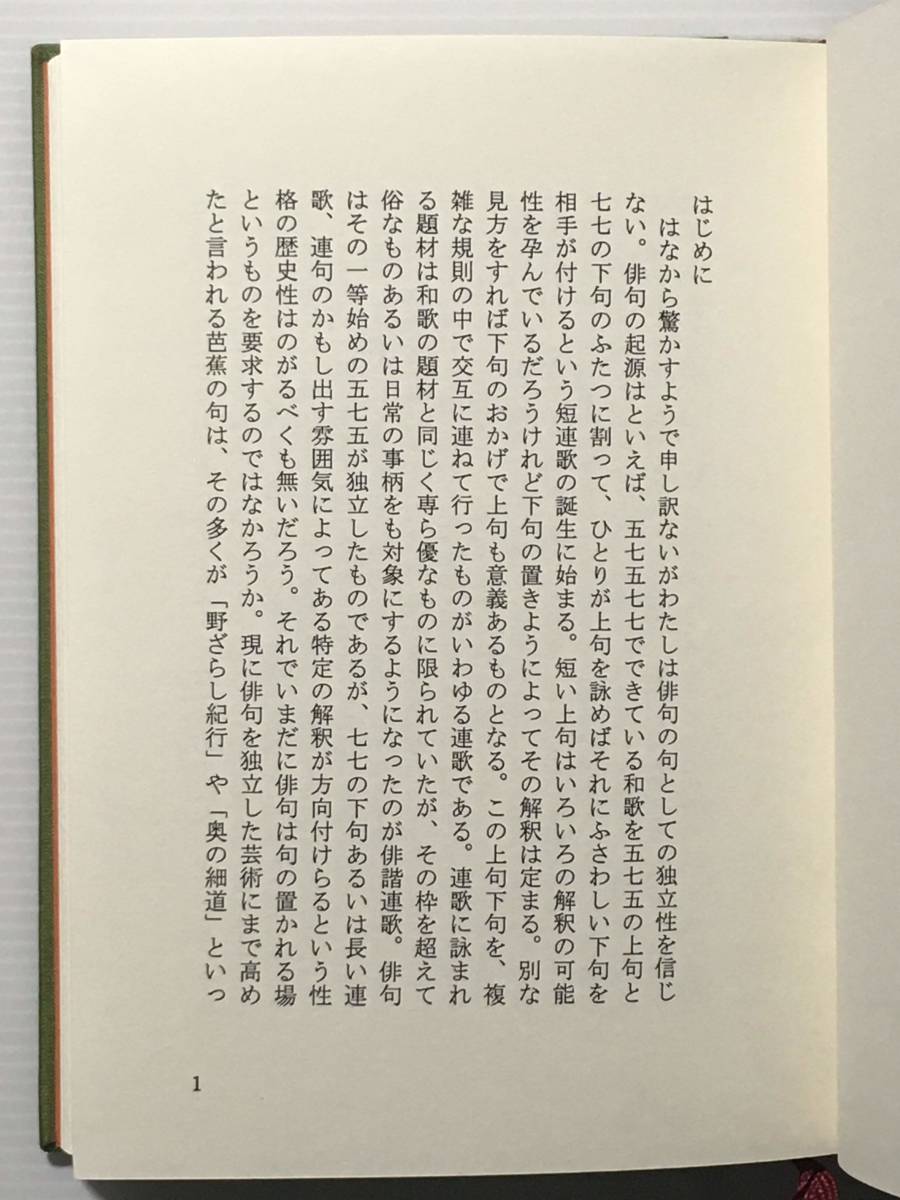 はじめに
はなから驚かすようで申し訳ないがわたしは俳句の句としての独立性を信じ
ない。俳句の起源はといえば、五七五七七でできている和歌を五七五の上句と
七七の下句のふたつに割って、ひとりが上句を詠めばそれにふさわしい下句を
相手が付けるという短連歌の誕生に始まる。短い上句はいろいろの解釈の可能
性を孕んでいるだろうけれど下句の置きようによってその解釈は定まる。別な
見方をすれば下句のおかげで上句も意義あるものとなる。この上句下句を、複
雑な規則の中で交互に連ねて行ったものがいわゆる連歌である。連歌に詠まれ
る題材は和歌の題材と同じく専ら優なものに限られていたが、その枠を超えて
俗なものあるいは日常の事柄をも対象にするようになったのが俳諧連歌。俳句
はその一等始めの五七五が独立したものであるが、七七の下句あるいは長い連
歌、連句のかもし出す雰囲気によってある特定の解釈が方向付けらるという性
格の歴史性はのがるべくも無いだろう。それでいまだに俳句は句の置かれる場
というものを要求するのではなかろうか。現に俳句を独立した芸術にまで高め
たと言われる芭蕉の句は、その多くが「野ざらし紀行」や「奥の細道」といっ
1